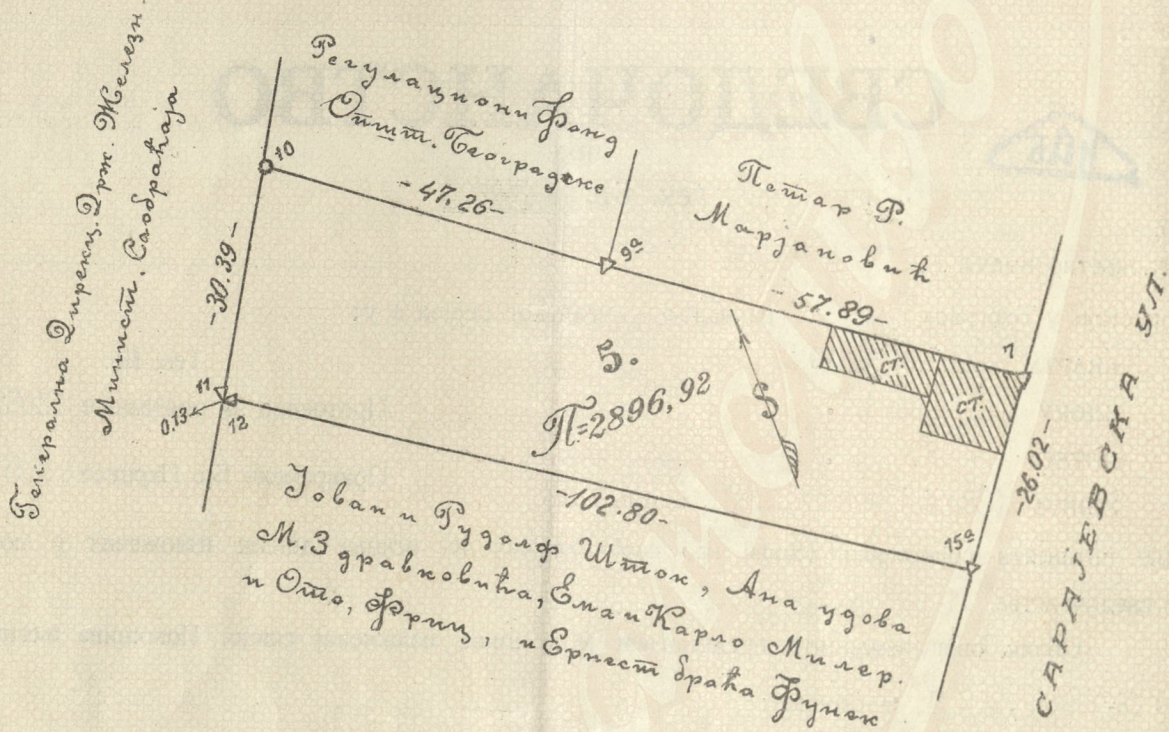 Генерална Дирекц. Држ. Железн-
Минист. Саобраћаја
Регулациони Фонд
Општ. Београдске
Петар Р.
Марјановић
10
-47.26-
9а
-57.89-
7
-30.39-
11
0.13
12
5.
П=2896,92
S
ст.
ст.
-102.80-
-26.02-
15а
САРАЈЕВСКА УЛ.
Јован и Рудолф Шток, Ана удова
М. Здравковића, Ема и Карло Милер.
и Ото, Фриц, и Ернест браћа Функ